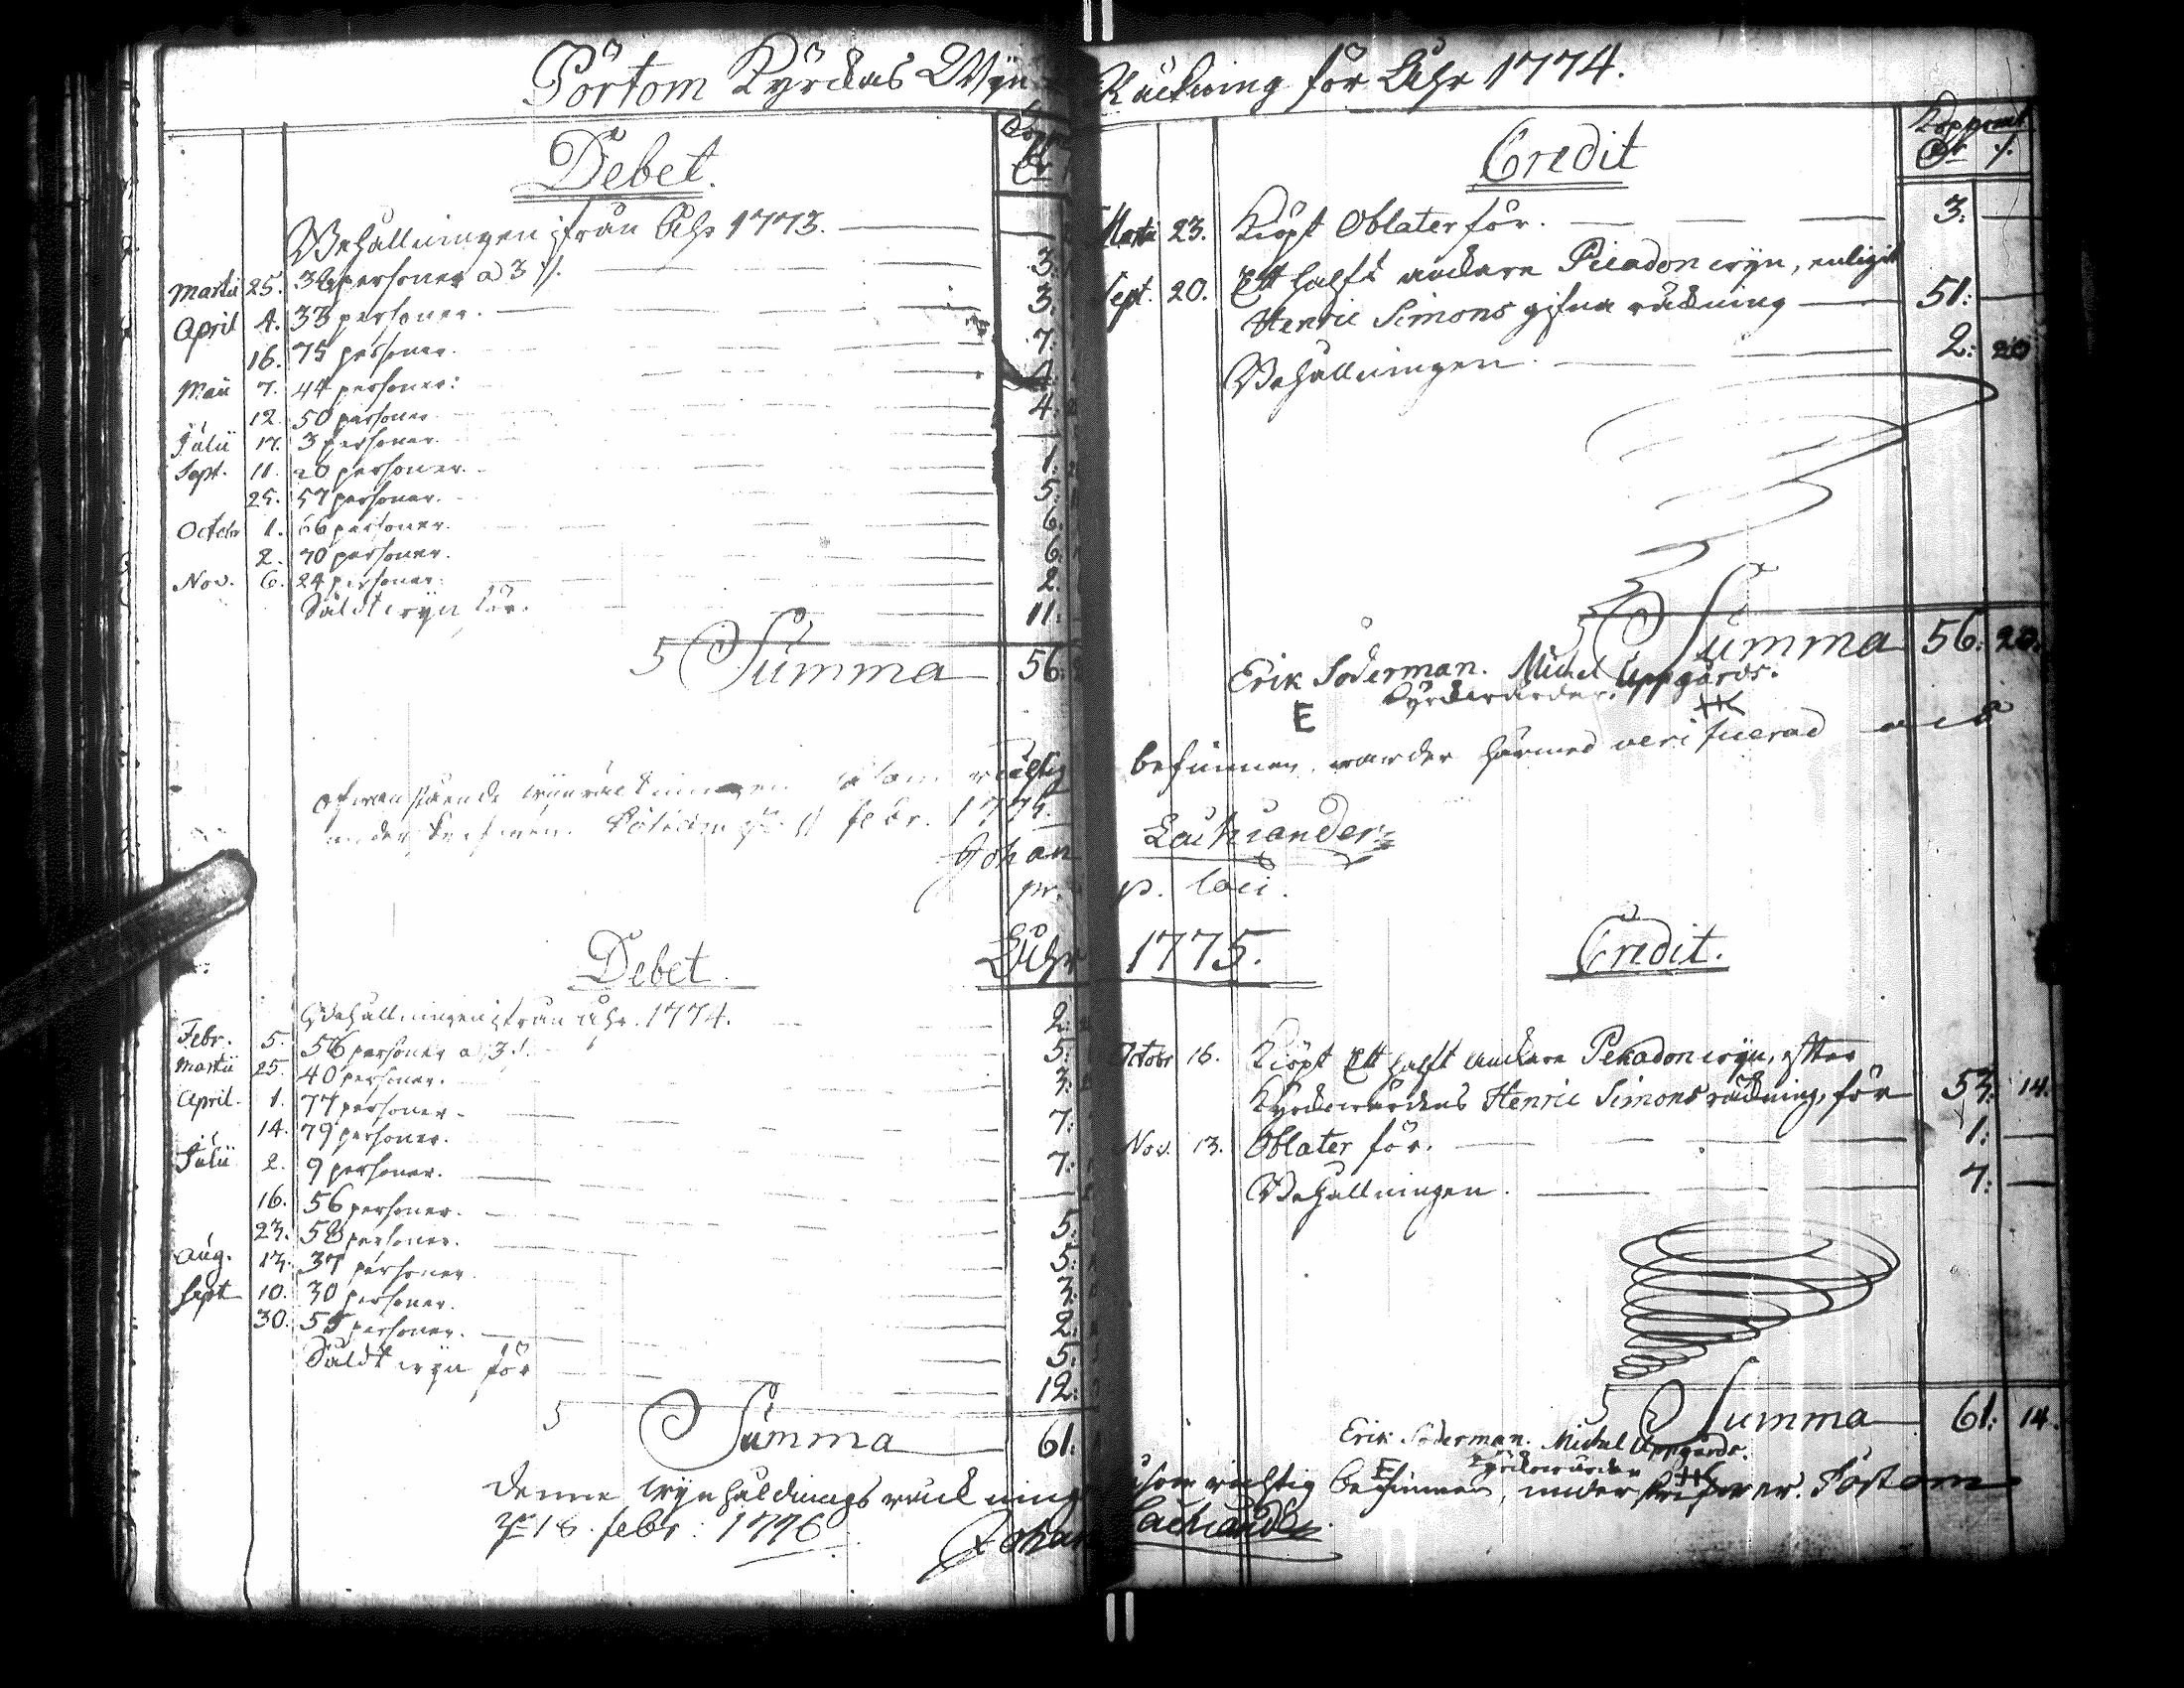 Pörtom Kyrckas Wyn Räckning för Åhr 1774.
Debet.
Kopp
Behållningen ifrån Åhr 1773.
Martii 25. personer a 3 3:
April 4. 33 personer. 3:
16. 75 personer. 7:
Maii 7. 44 personer: 4:
12. 50 personer 4:
Julii 17. 3 personer.
Sept. 11. 20 personer. 1:
25. 57 personer. 5:
Octobr 1. 66 personer. 6:
2. 70 personer. 6:
Nov. 6. 24 personer. 2:
Såldt wyn för. 11:
Summa 56:
Credit
Kopparmt
Martii 23. Kiöpt Oblater för. 3:
Sept. 20. Ett halft anckare Picadon wyn, enligit
Henric Simons gifna räckning 51:
Behållningen. 2: 20
Summa 56: 20.
Erik Söderman. Michel Uppgårds.
Kyrckiowärder.
E
Ofwanstående wynräckningen såsom richtig befunnen, warder härmed verificerad och
underskrifwen. Pörtom 11 febr. 1775.
Johan Lachiander
pr. p. loci.
Åhr 1775.
Debet.
Behållningen ifrån åhr. 1774. 2:
Febr. 5. 56 personer a 3 5:
Martii 25. 40 personer. 3:
April. 1. 77 personer 7:
14. 79 personer. 7:
Julii 2. 9 personer.
16. 56 personer. 5:
23. 58 personer. 5:
Aug. 13. 37 personer 3:
Sept 10. 30 personer. 2:
30. 55 personer. 5:
Såldt wyn för 12:
Summa 61:
Credit.
Octobr 16. Kiöpt Ett halft anckare Pekadon wyn, efter
Kyrckiowärdens Henric Simons räckning, för 53: 14.
Nov. 13. Oblater för. 1:
Behållningen. 7:
Summa 61: 14.
Erik Söderman. Michel Uppgårds.
Kyrckiowärder
E
Denne wynhaldnings räckning såsom richtig befunnen, underskrifwer. Pörtom
18. febr: 1776.
Johan Lachiander